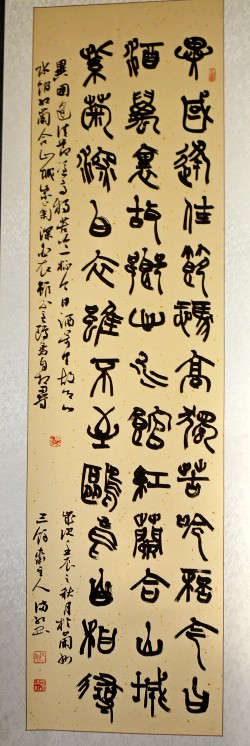 異國逢佳節憑高獨苦吟杯今日
酒萬里故鄉心水館紅蘭合山城
紫菊深白衣雖不至鷗鳥自相尋
異國逢佳節憑高獨苦吟一杯今日酒萬里故鄉心
水館紅蘭合山城紫菊深白衣雖不至鷗鳥自相尋
歲次壬辰之秋月於蘭州
主人